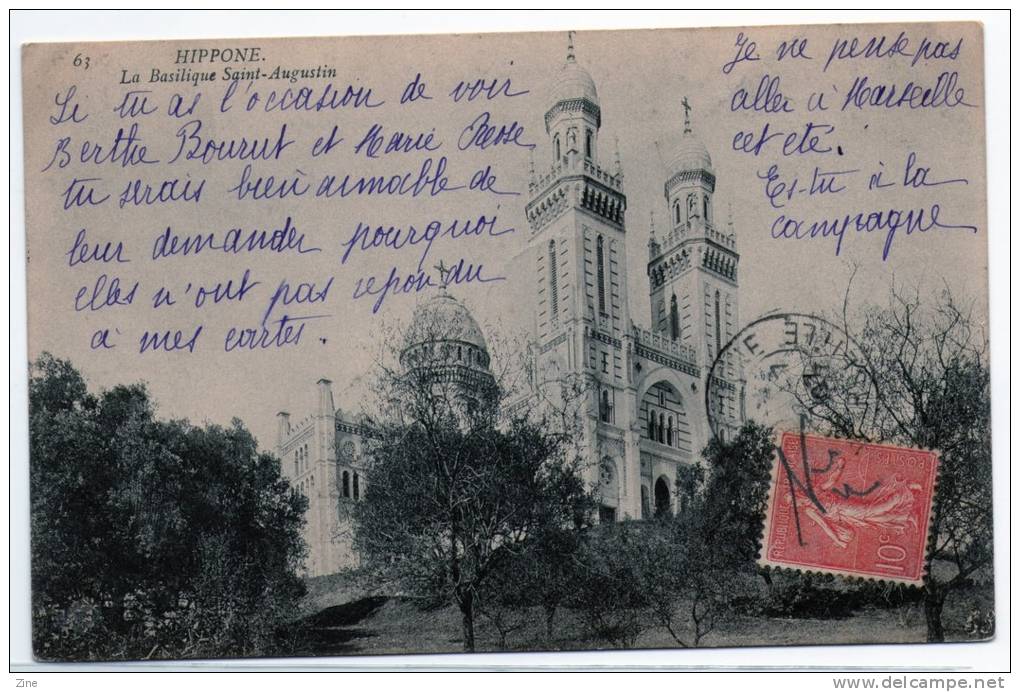 63
HIPPONE.
La Basilique Saint-Augustin
Si tu as l'occasion de voir
Berthe Bourut et Marie Resse
tu serais bien aimable de
leur demander pourquoi
elles n'ont pas repondu
à mes cartes.
Je ne pense pas
aller à Marseille
cet été.
Es-tu à la
campagne
POSTES
10c
Zine
delcampe.net